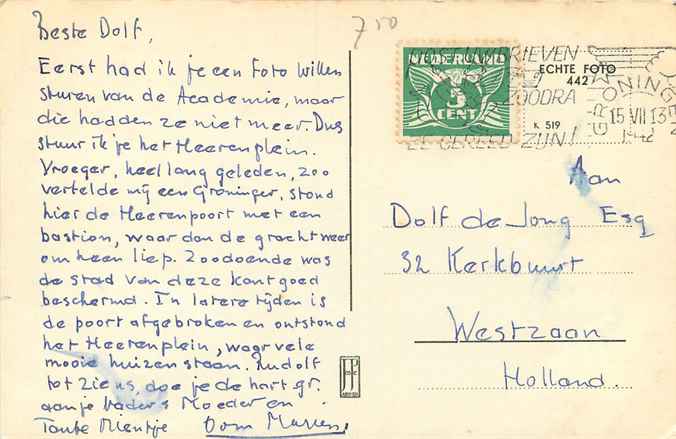 Beste Dolf,
Eerst had ik je een foto willen
sturen van de Academie, maar
die hadden ze niet meer. Dus
stuur ik je het Heerenplein.
Vroeger, heel lang geleden, zoo
vertelde mij een Groninger, stond
hier de Heerenpoort met een
bastion, waar dan de gracht weer
om heen liep. Zoodoende was
de stad van deze kant goed
beschermd. In latere tijden is
de poort afgebroken en ontstond
het Heerenplein, waar vele
mooie huizen staan. Rudolf
tot ziens, doe je de hart. gr.
aan je Vader & Moeder en
Tante Mientje Oom
750
NEDERLAND
5
CENT
POST UW BRIEVEN
ZOODRA
ZE GEREED ZIJN!
GRONINGEN
15 VII 13
1942
ECHTE FOTO
442
K 519
Aan
Dolf de Jong Esq
32 Kerkbuurt
Westzaan
Holland.